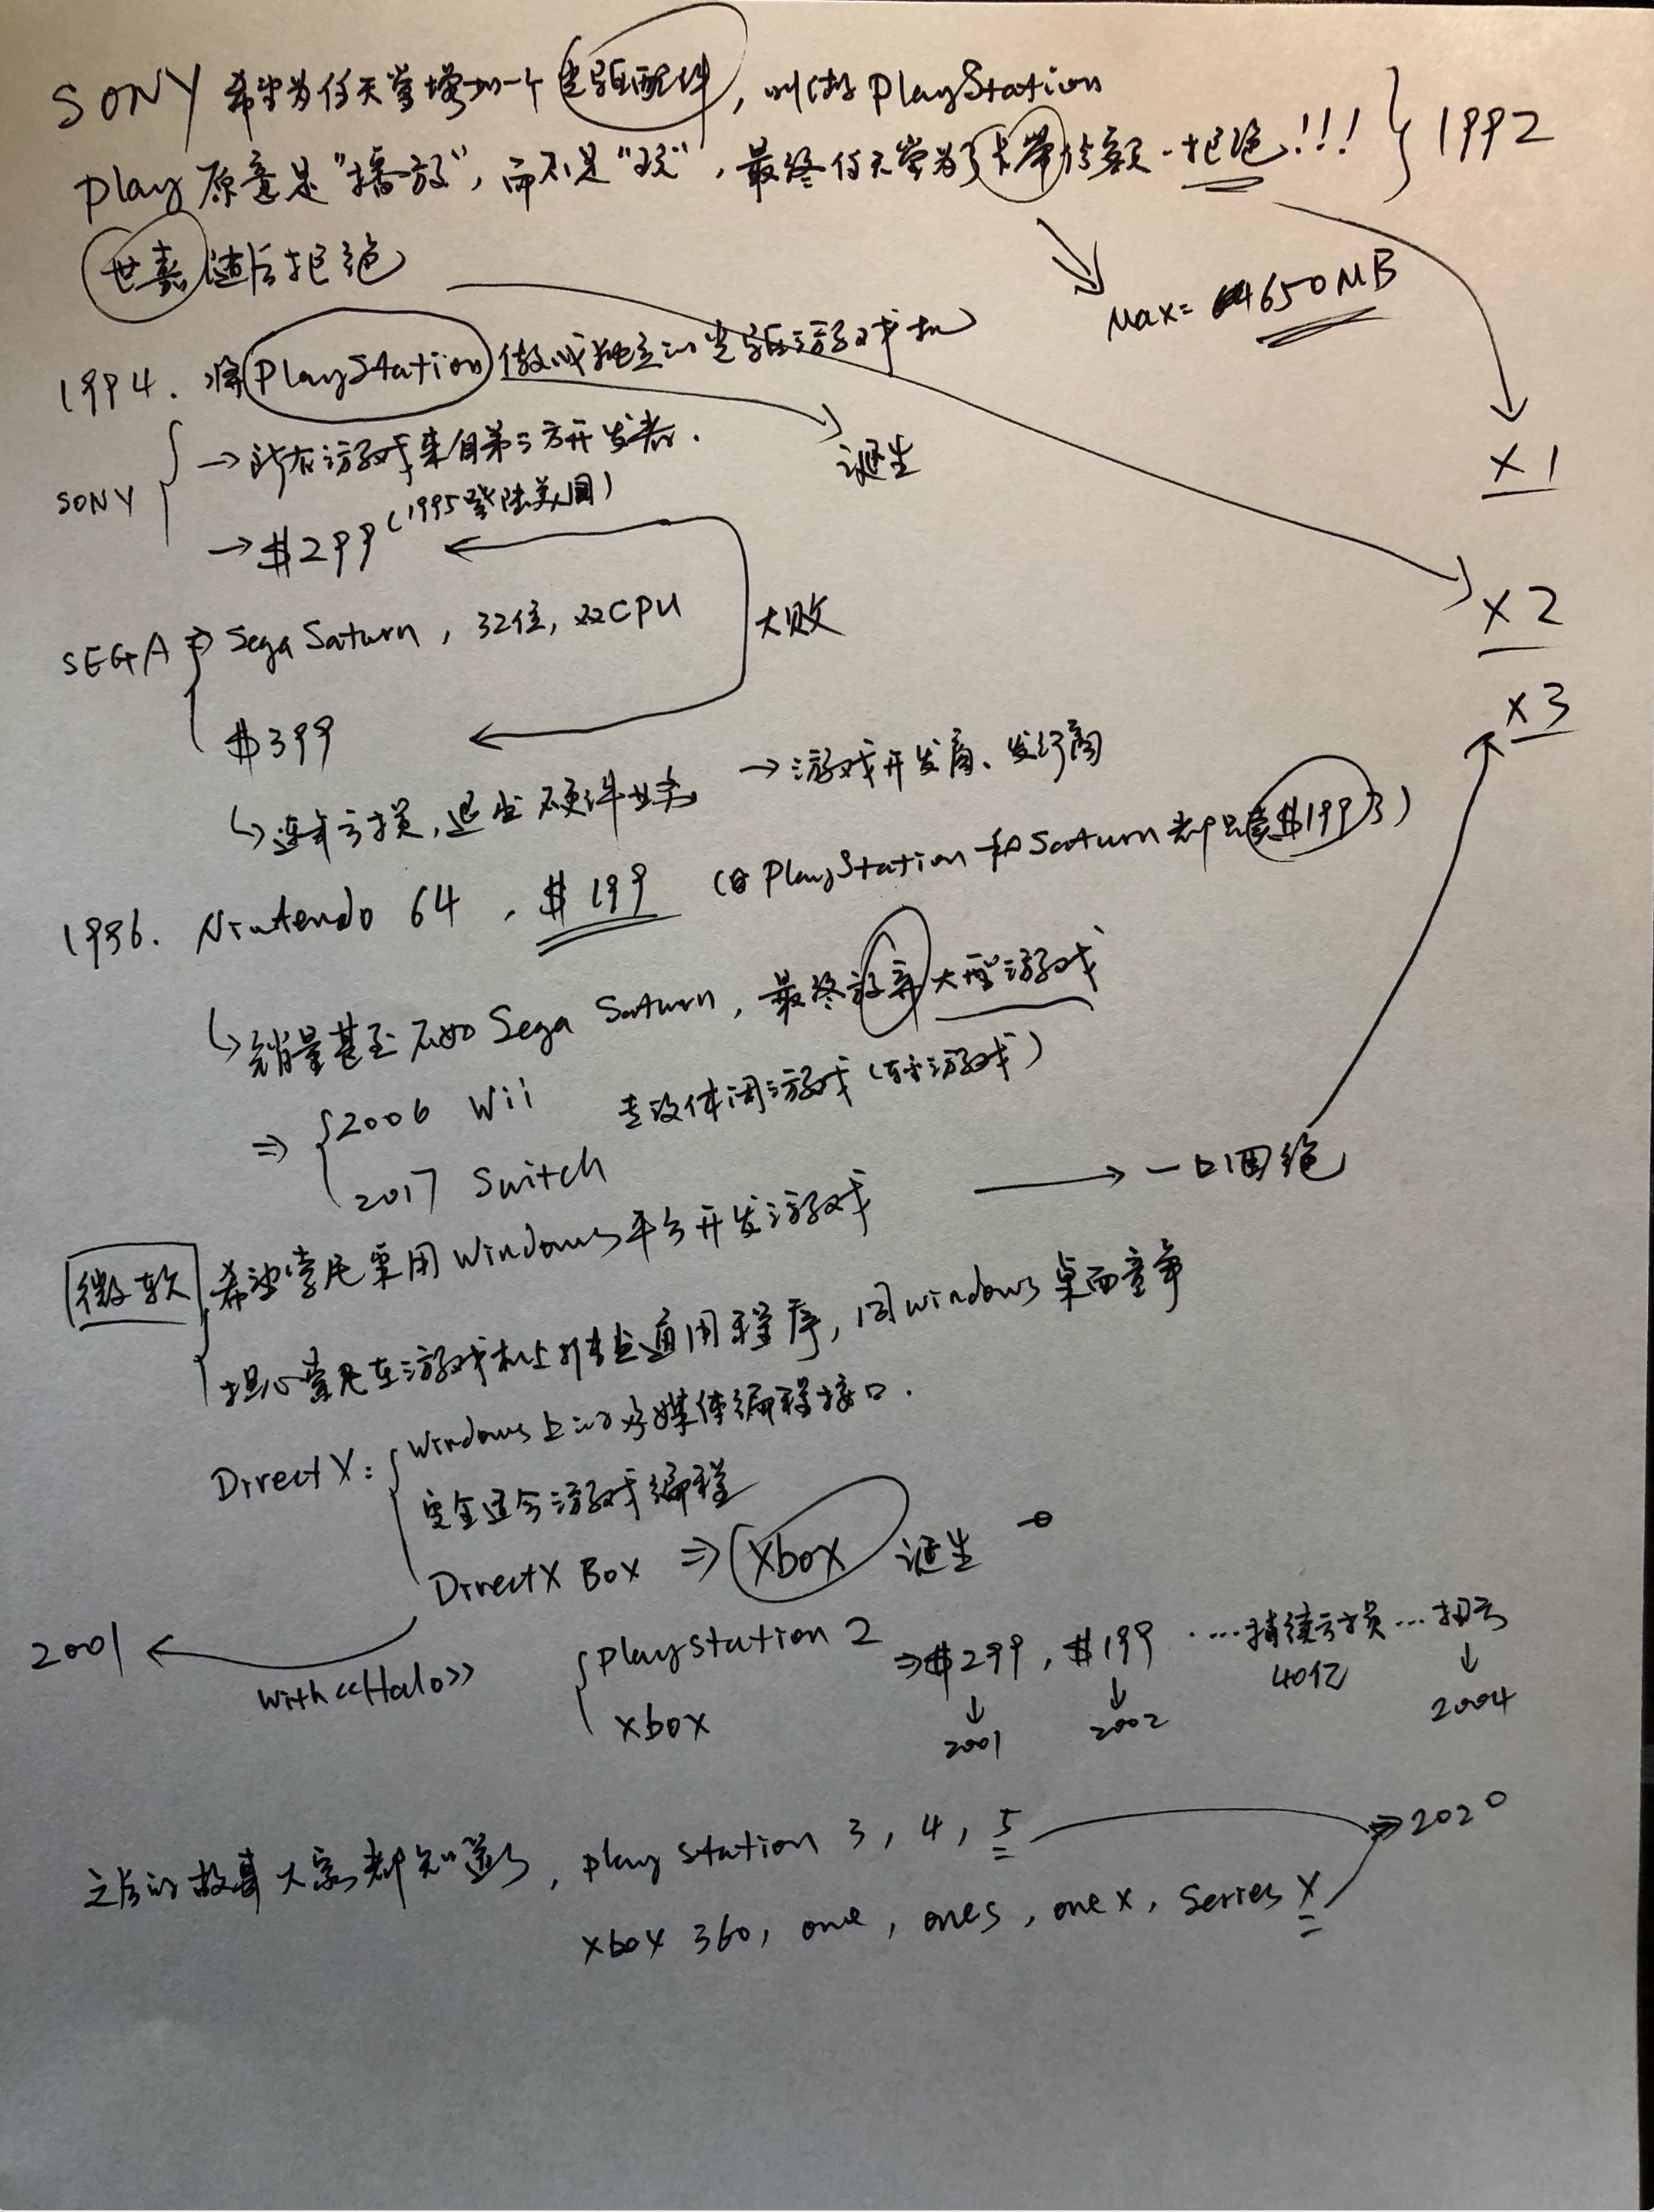 SONY 希望为任天堂增加一个光驱配件，叫做 PlayStation
Play 原意是“播放”，而不是“玩”，最终任天堂为了卡带份额．拒绝！！！ } 1992
世嘉随后拒绝
Max= 650MB
1994. 将 PlayStation 做成独立的光驱游戏机
诞生
×1
SONY { → 所有游戏来自第三方开发者．
→ $299（1995登陆美国）
×2
SEGA ⇒ Sega Saturn , 32位, 双CPU
大败
×3
$399
↳ 连年亏损, 退出硬件业务 → 游戏开发商、发行商
1996. Nintendo 64 , $199 （但 PlayStation 和 Saturn 都只卖$199了）
↳ 销量甚至不如 Sega Saturn, 最终放弃大型游戏
⇒ { 2006 Wii 主攻休闲游戏（轻游戏）
2017 Switch
微软 { 希望索尼采用 Windows 平台开发游戏 → 一口回绝
担心索尼在游戏机上推出通用程序, 同 windows 桌面竞争
DirectX : { Windows 上的多媒体编程接口．
完全适合游戏编程
DirectX Box ⇒ Xbox 诞生
2001 ← with《Halo》
{ Playstation 2 ⇒ $299 , $199 ····持续亏损 ··· 扭亏
xbox
↓ 2001 ↓ 2002 40亿 ↓ 2004
之后的故事大家都知道了, play station 3, 4, 5 ⇒ 2020
xbox 360, one, ones, one x, Series X